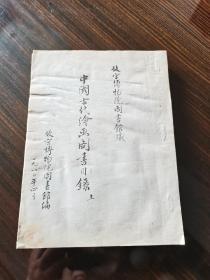 故宫博物院图书馆藏
中国古代绘画图书目录 上
故宫博物院图书馆编